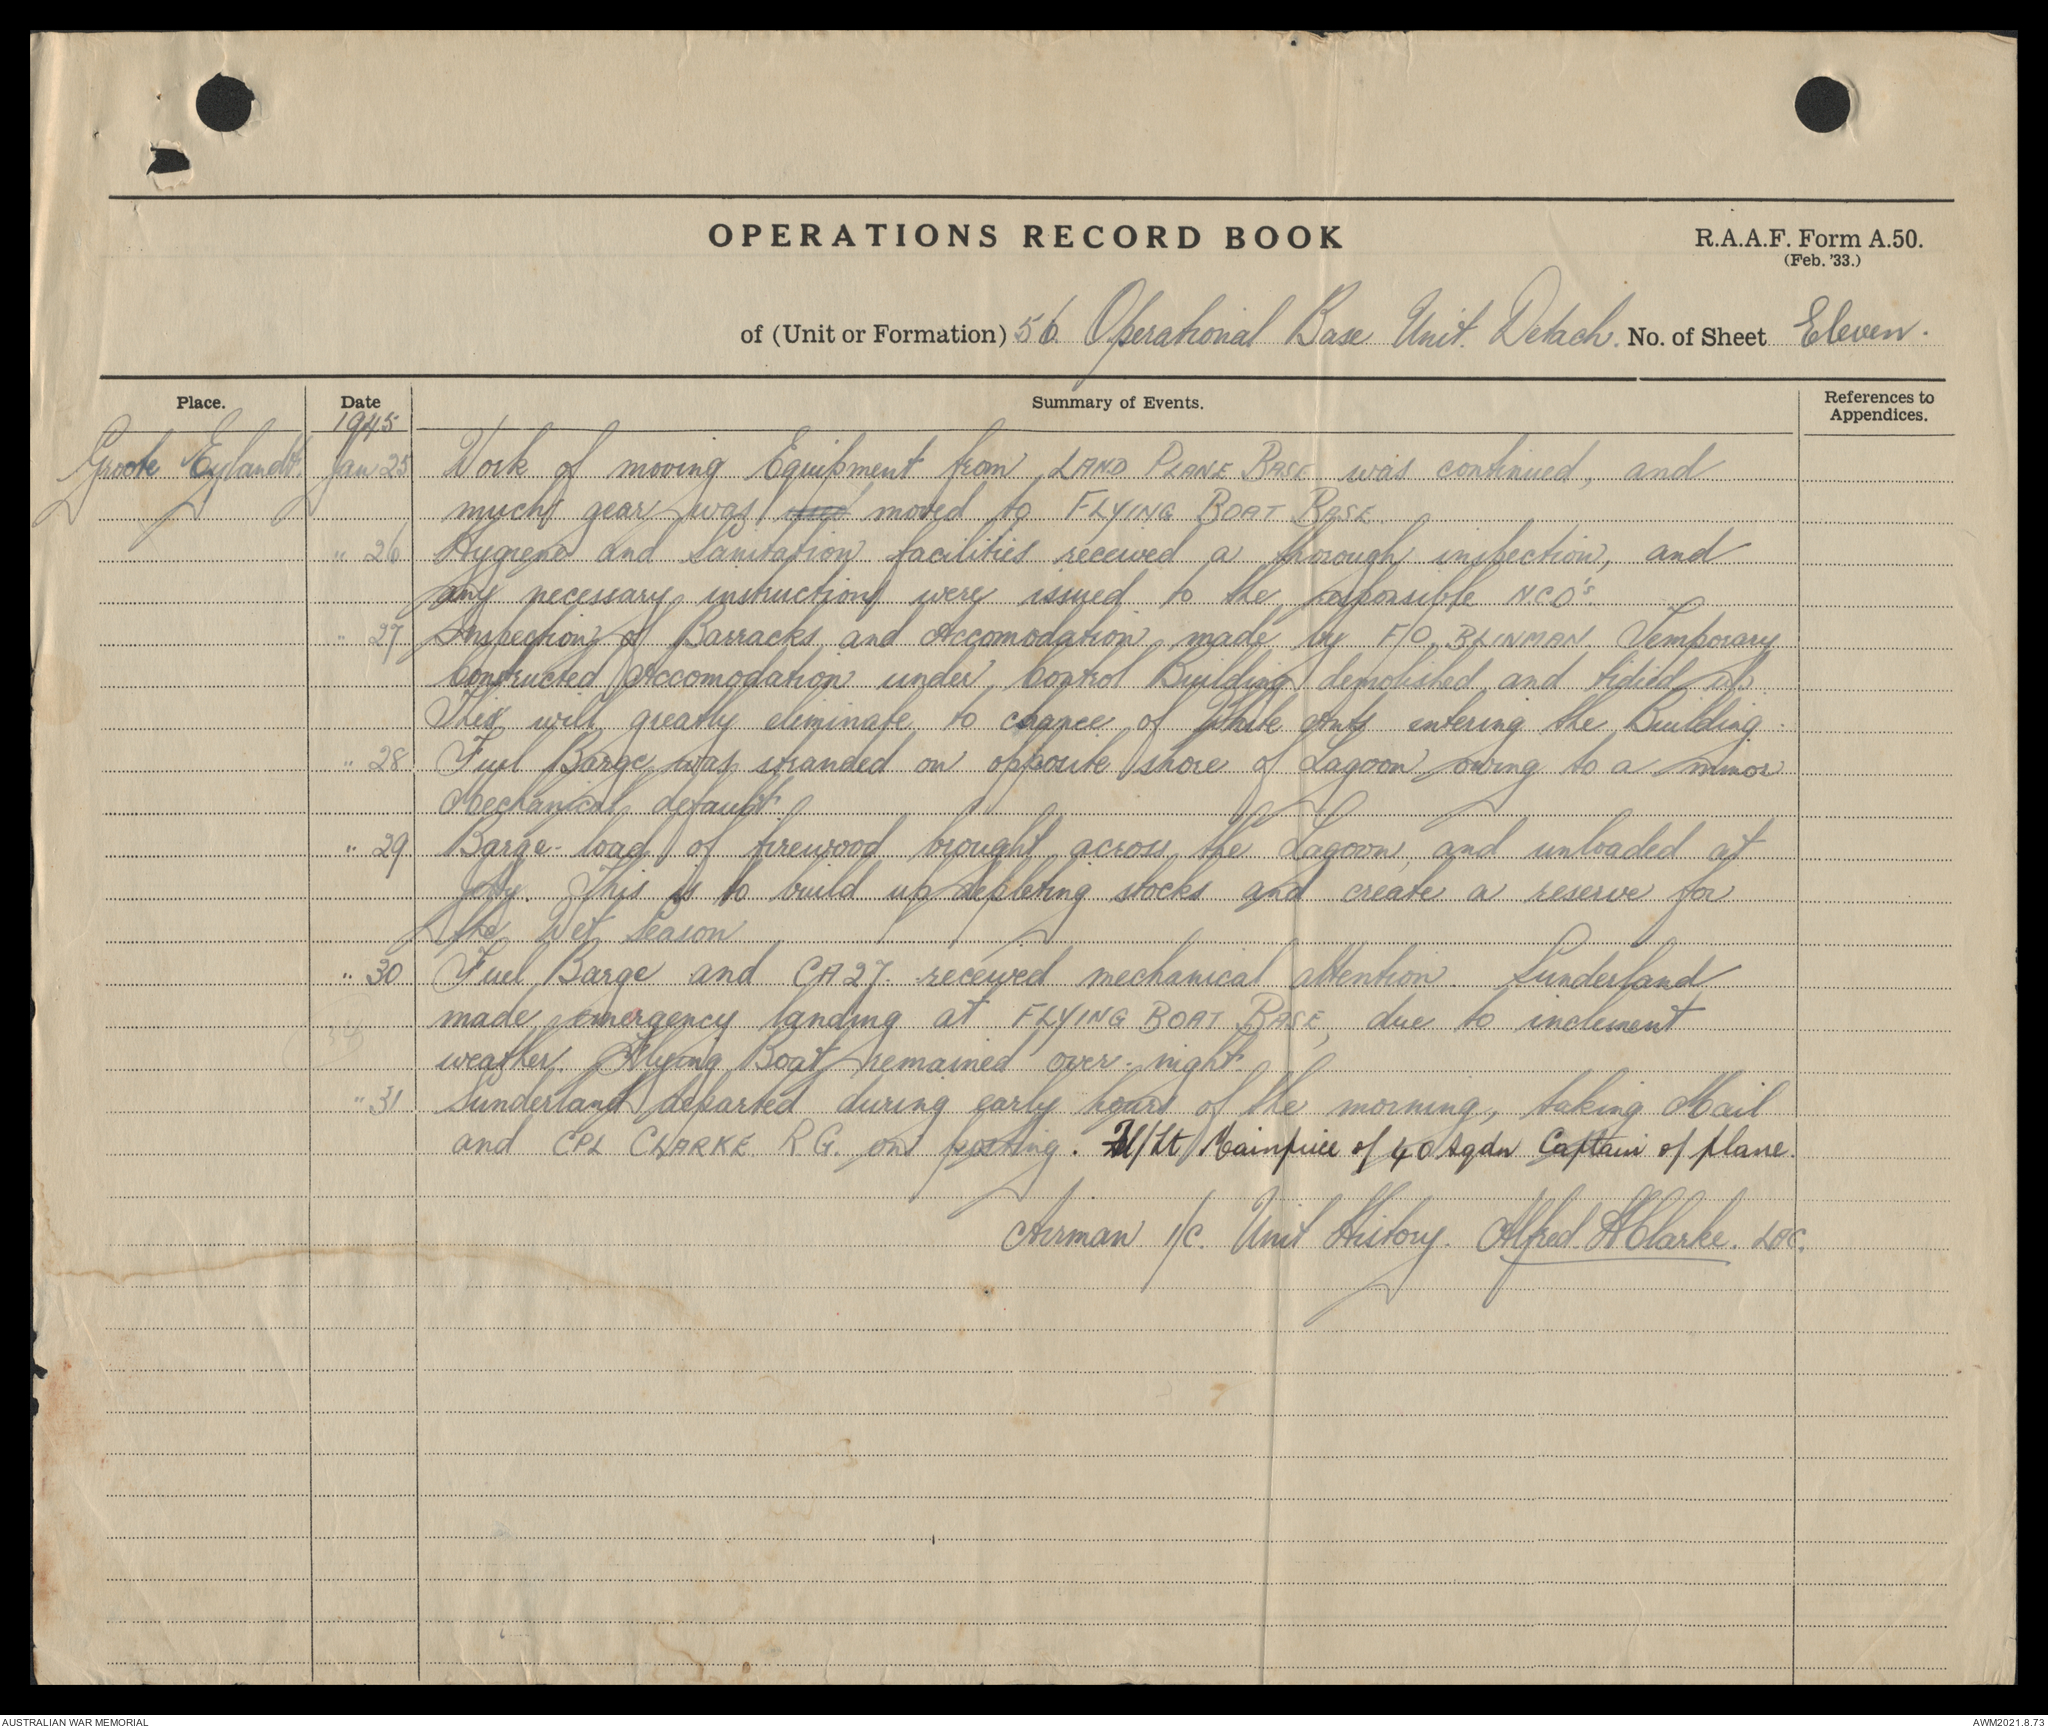 OPERATIONS RECORD BOOK
R.A.A.F. Form A.50.
(Feb. '33.)
of (Unit or Formation) 56 Operational Base Unit. Detach. No. of Sheet Eleven.
Place. Date Summary of Events. References to Appendices.
1945
Groote Eylandt. Jan 25 Work of moving Equipment from LAND PLANE BASE was continued, and
much gear was moved to FLYING BOAT BASE.
" 26 Hygiene and Sanitation facilities received a thorough inspection, and
any necessary instructions were issued to the responsible NCO's.
" 27 Inspection of Barracks and Accomodation made by F/O BLINMAN. Temporary
Constructed Accomodation under Control Building demolished and tidied up.
This will greatly eliminate to chance of White Ants entering the Building.
" 28 Fuel Barge was stranded on opposite shore of Lagoon owing to a minor
Mechanical default.
" 29 Barge-load of firewood brought across the Lagoon, and unloaded at
jetty. This is to build up depleting stocks and create a reserve for
the Wet Season
" 30 Fuel Barge and CA27. received mechanical attention. Sunderland
made emergency landing at FLYING BOAT BASE, due to inclement
weather. Flying Boat remained over-night.
" 31 Sunderland departed during early hours of the morning, taking Mail
and CPL CLARKE. R.G. on posting. Fl/Lt Mainprice of 40 Sqdn Captain of plane.
Airman I/C. Unit History. Alfred. A Clarke. LAC.
AUSTRALIAN WAR MEMORIAL
AWM2021.8.73